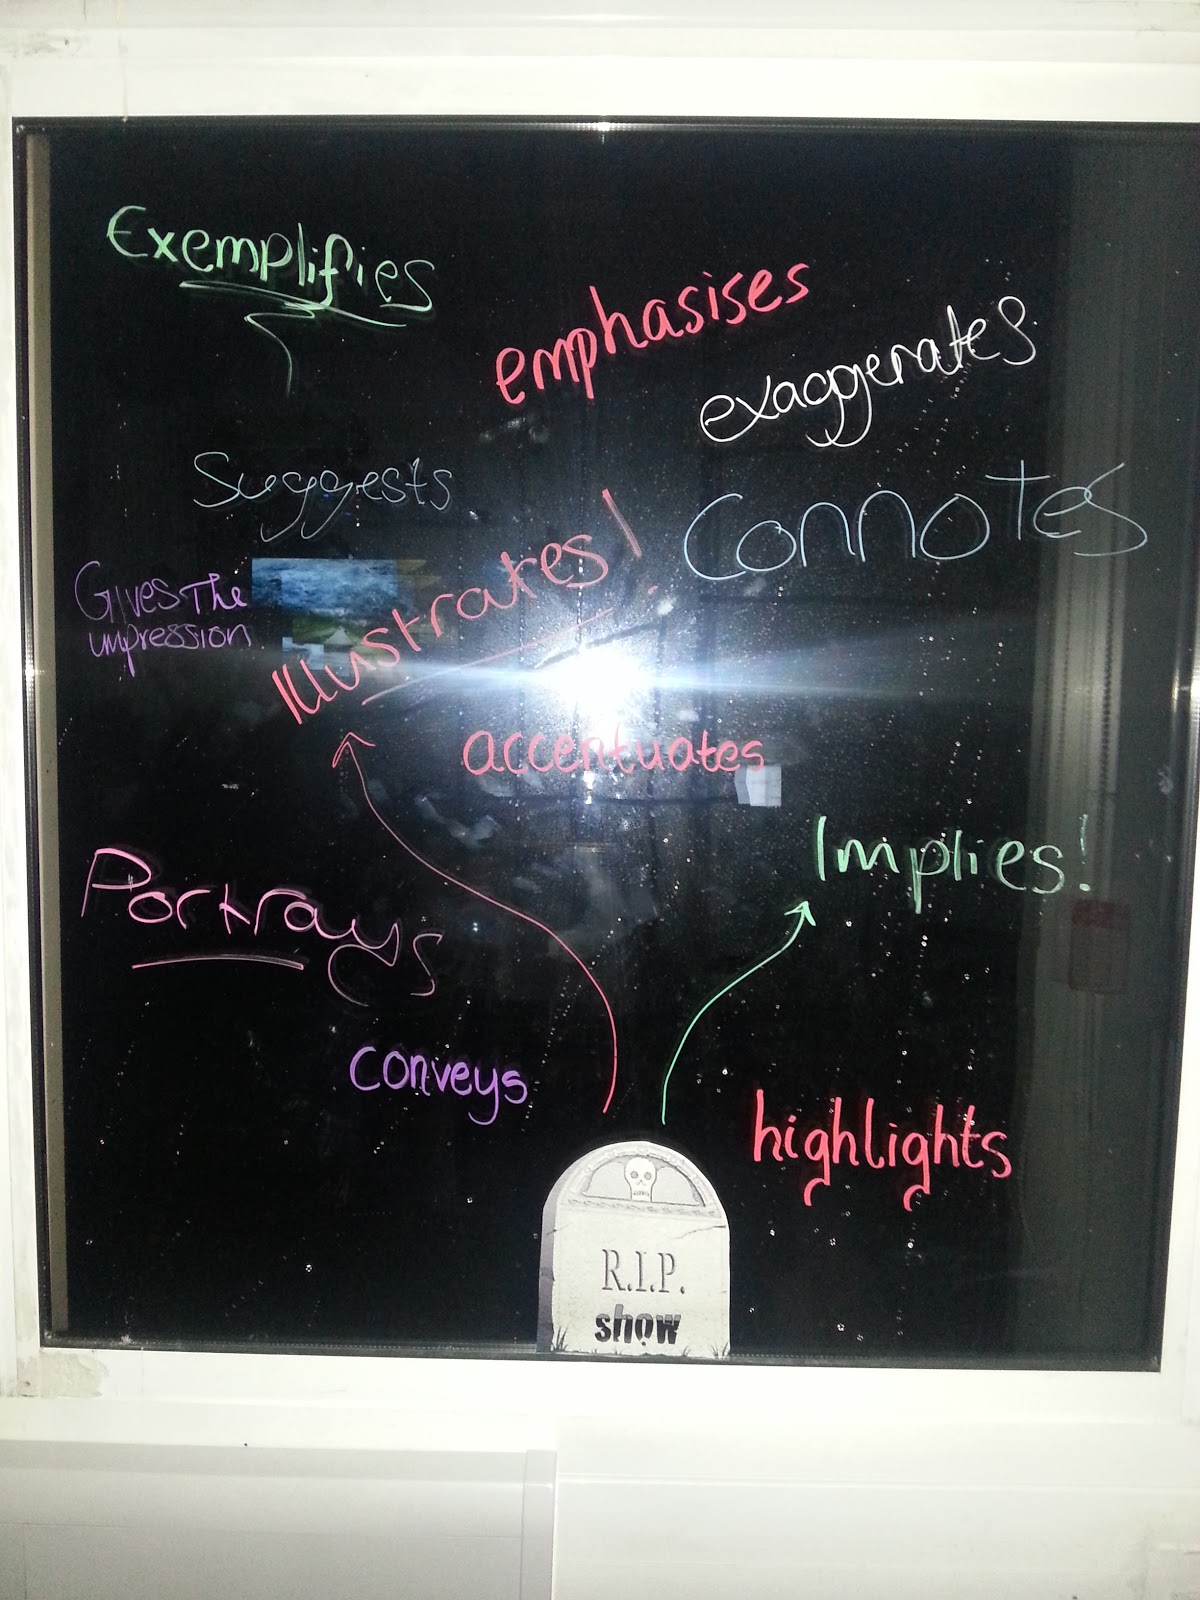 Exemplifies
emphasises
exaggerates
Suggests
Connotes
Gives The
impression
Illustrates!
accentuates
Implies!
Portrays
conveys
highlights
R.I.P.
show